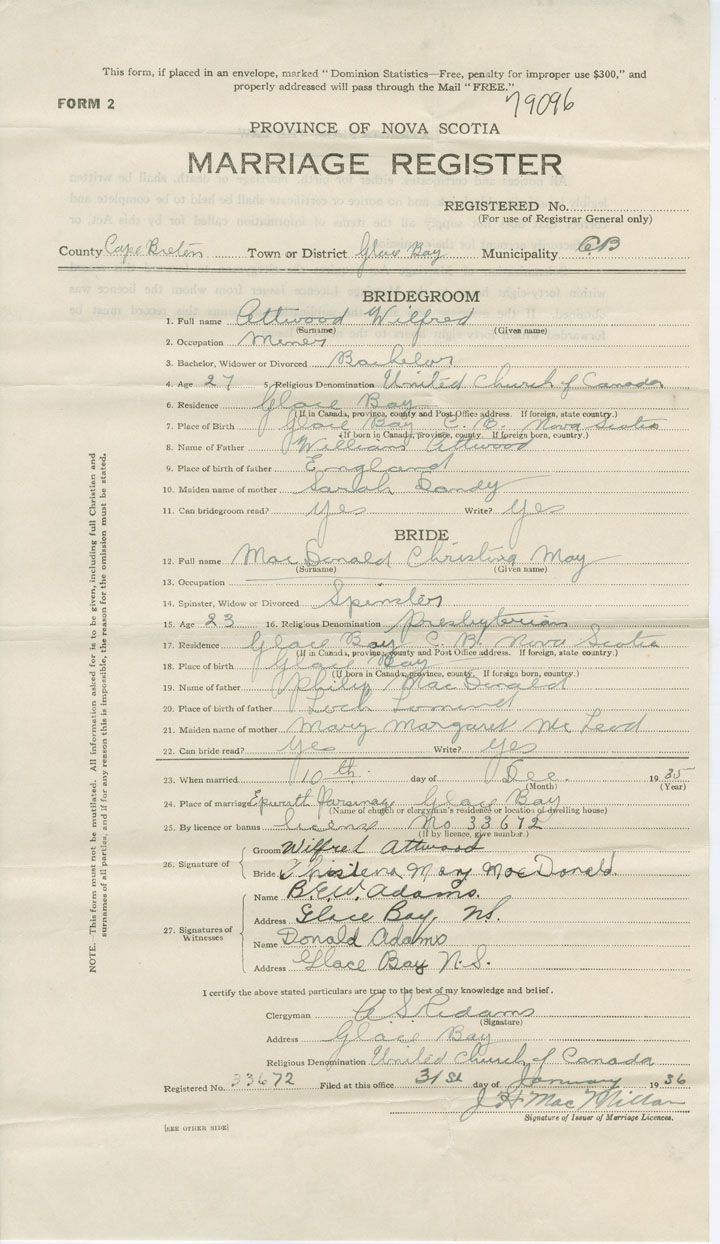 This form, if placed in an envelope, marked "Dominion Statistics—Free, penalty for improper use $300," and
properly addressed will pass through the Mail "FREE."
FORM 2
79096
PROVINCE OF NOVA SCOTIA
MARRIAGE REGISTER
REGISTERED No.
(For use of Registrar General only)
County Cape Breton Town or District Glace Bay Municipality CB
BRIDEGROOM
1. Full name Attwood Wilfred
(Surname) (Given name)
2. Occupation Miner
3. Bachelor, Widower or Divorced Bachelor
4. Age 27 5. Religious Denomination United Church of Canada
6. Residence Glace Bay
(If in Canada, province, county and Post Office address. If foreign, state country.)
7. Place of Birth Glace Bay C. B. Nova Scotia
(If born in Canada, province, county. If foreign born, country.)
8. Name of Father William Attwood
9. Place of birth of father England
10. Maiden name of mother Sarah Dandy
11. Can bridegroom read? Yes Write? Yes
BRIDE
12. Full name MacDonald Christina May
(Surname) (Given name)
13. Occupation
14. Spinster, Widow or Divorced Spinster
15. Age 23 16. Religious Denomination Presbyterian
17. Residence Glace Bay C. B. Nova Scotia
(If in Canada, province, county and Post Office address. If foreign, state country.)
18. Place of birth Glace Bay
(If born in Canada, province, county. If foreign born, country.)
19. Name of father Philip MacDonald
20. Place of birth of father Loch Lomond
21. Maiden name of mother Mary Margaret McLeod
22. Can bride read? Yes Write? Yes
23. When married 10th day of Dec. 1935
(Month) (Year)
24. Place of marriage Glace Bay
(Name of church or clergyman's residence or location of dwelling house)
25. By licence or banns license No 33672
(If by licence, give number.)
26. Signature of
Groom Wilfred Attwood
Bride Christena May MacDonald.
27. Signatures of Witnesses
Name B.E.W. Adams.
Address Glace Bay, N.S.
Name Donald Adams
Address Glace Bay N.S.
I certify the above stated particulars are true to the best of my knowledge and belief.
Clergyman Adams
(Signature)
Address Glace Bay
Religious Denomination United Church of Canada
Registered No. 33672 Filed at this office 31st day of January 1936
J H MacMillan
Signature of Issuer of Marriage Licences.
[SEE OTHER SIDE]
NOTE. This form must not be mutilated. All information asked for is to be given, including full Christian and
surnames of all parties, and if for any reason this is impossible, the reason for the omission must be stated.